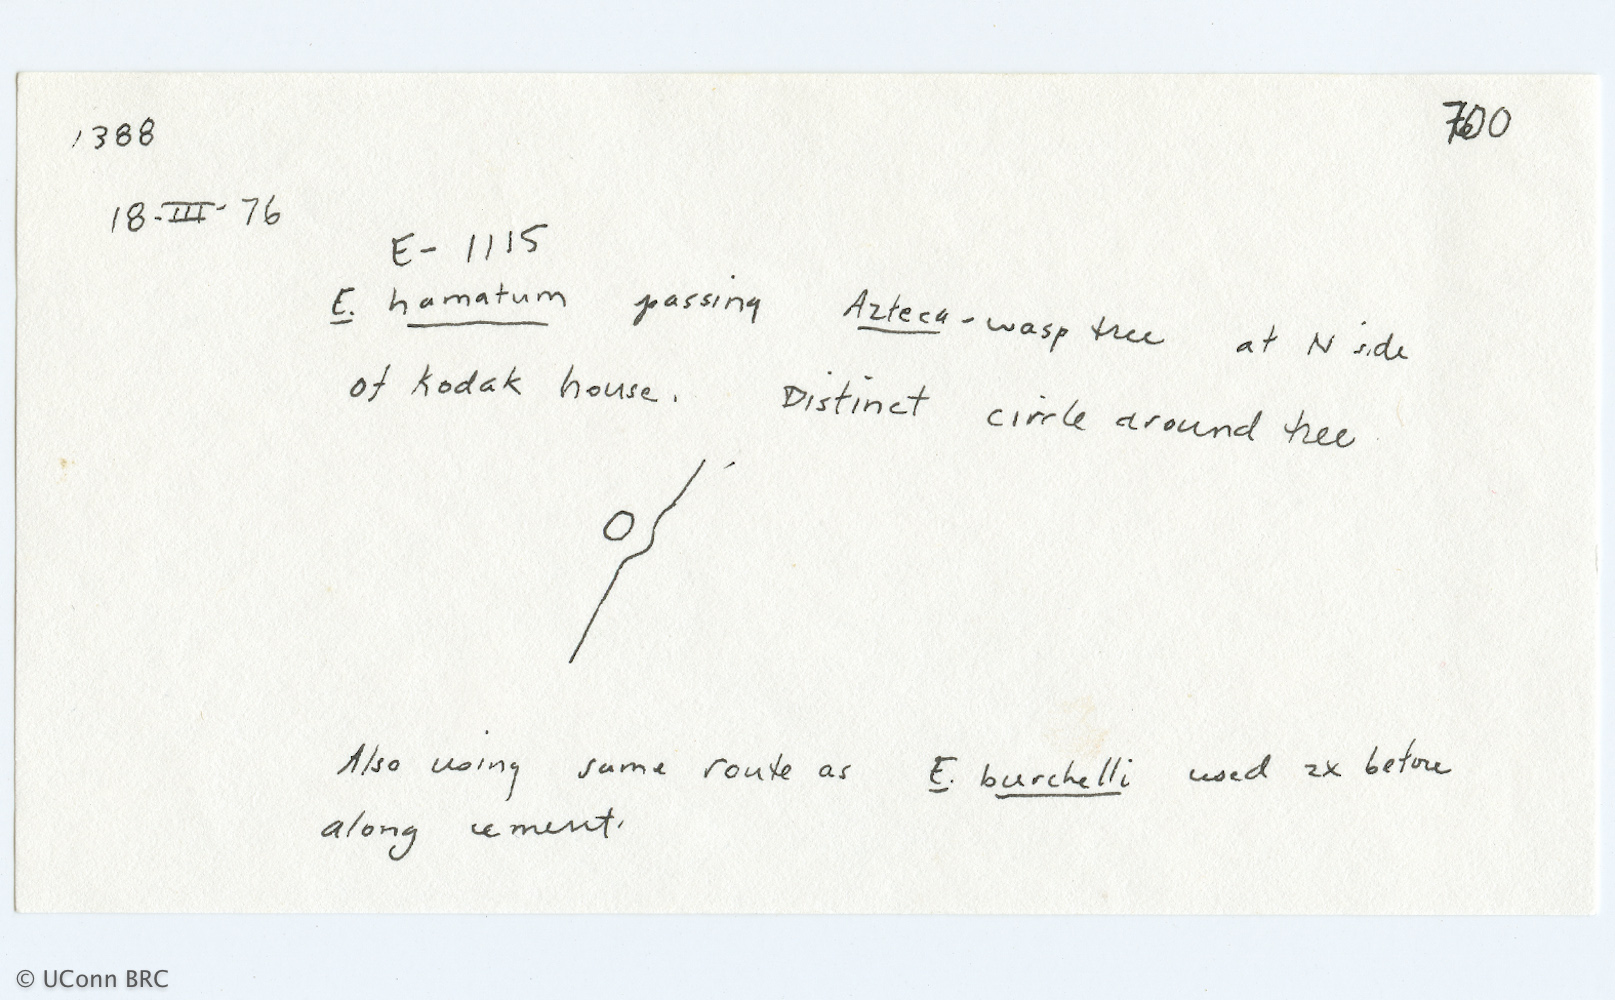 1388
700
18-III-76
E-1115
E. hamatum passing Azteca-wasp tree at N side
of Kodak house. Distinct circle around tree
Also using same route as E. burchelli used 2x before
along cement.
© UConn BRC